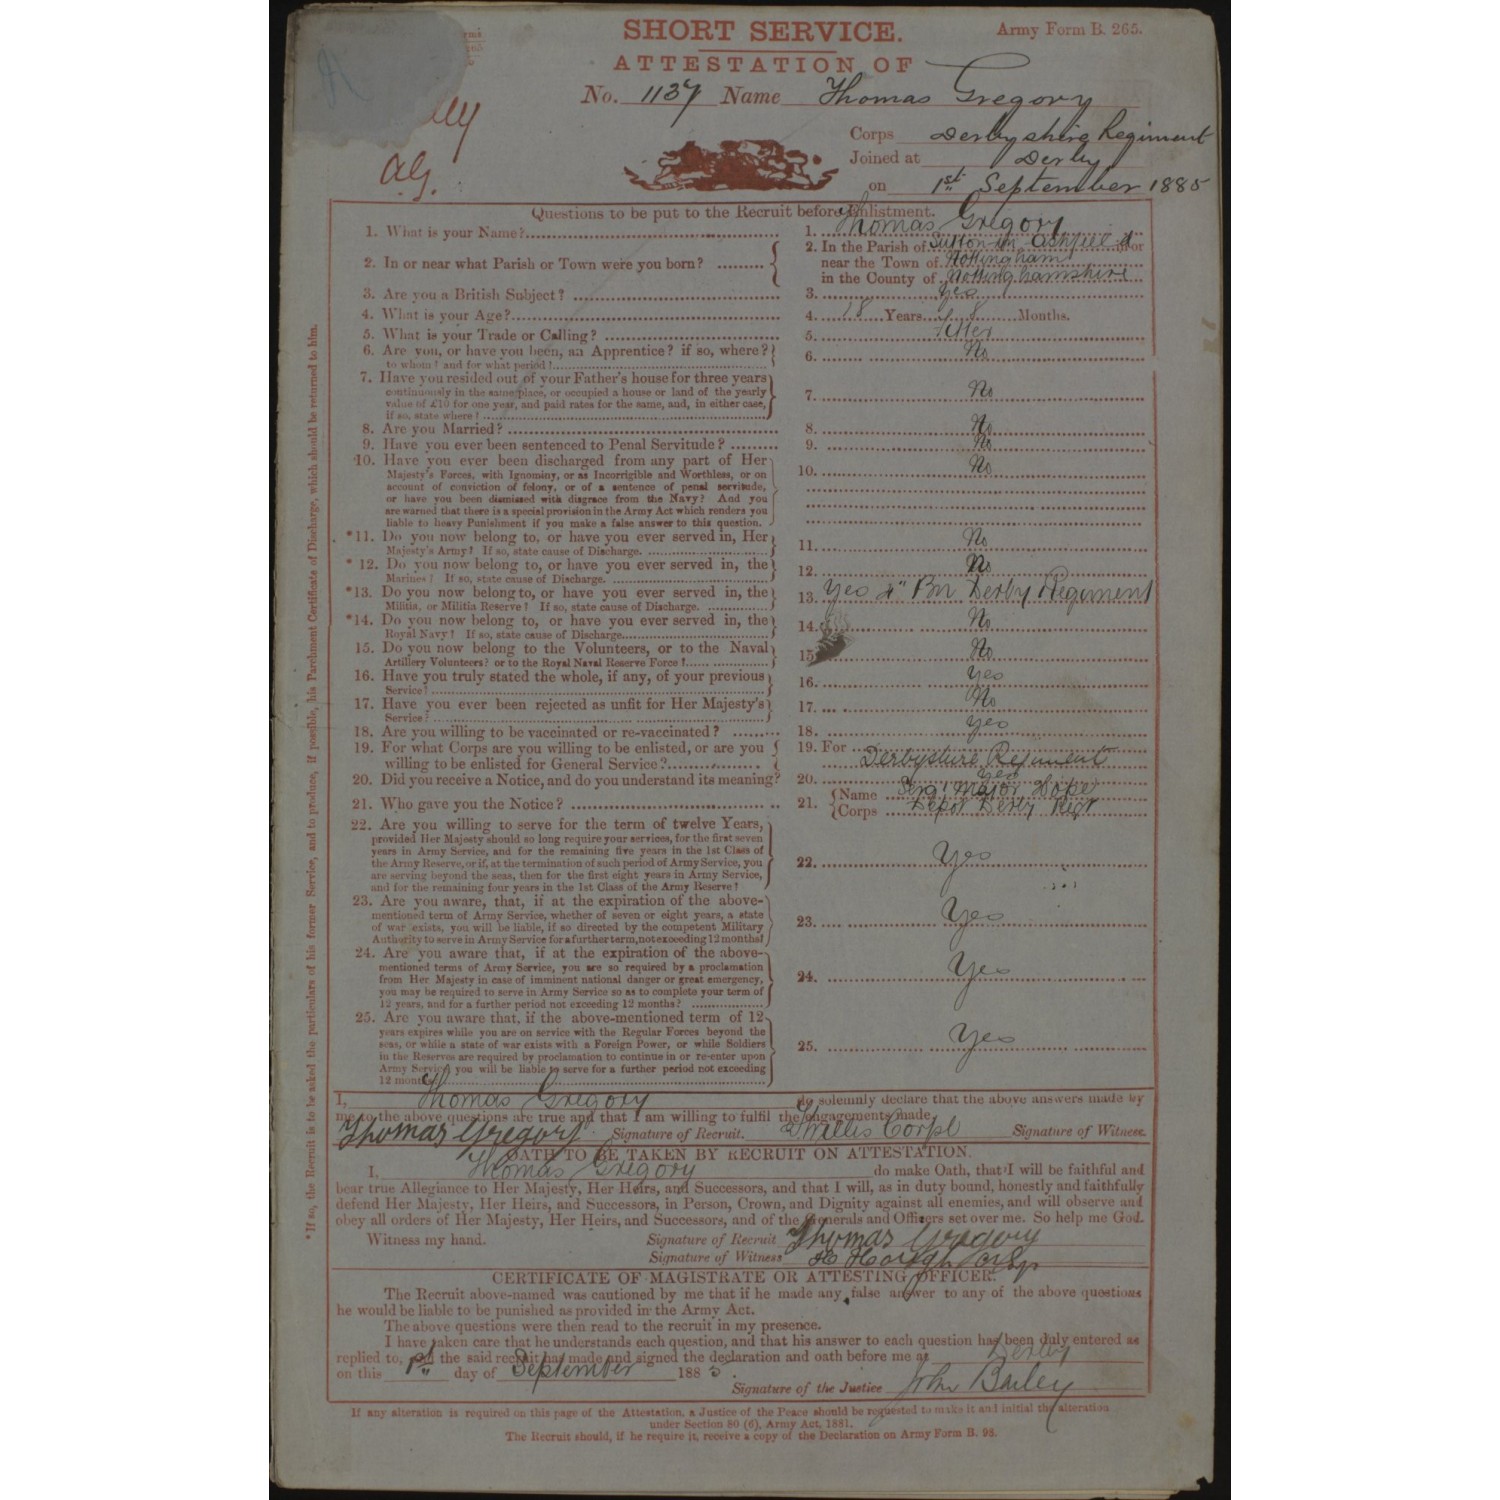 SHORT SERVICE.
Army Form B. 265.
ATTESTATION OF
No. 1137 Name Thomas Gregory
Corps Derbyshire Regiment
Joined at Derby
on 1st September 1885
Questions to be put to the Recruit before Enlistment.
1. What is your Name? 1. Thomas Gregory
2. In or near what Parish or Town were you born? 2. In the Parish of Sutton in Ashfield or
near the Town of Nottingham
in the County of Nottinghamshire
3. Are you a British Subject? 3. Yes
4. What is your Age? 4. 18 Years 8 Months.
5. What is your Trade or Calling? 5.
6. Are you, or have you been, an Apprentice? if so, where? 6. No
to whom? and for what period?
7. Have you resided out of your Father's house for three years 7. No
continuously in the same place, or occupied a house or land of the yearly
value of £10 for one year, and paid rates for the same, and, in either case,
if so, state where?
8. Are you Married? 8. No
9. Have you ever been sentenced to Penal Servitude? 9. No
10. Have you ever been discharged from any part of Her 10. No
Majesty's Forces, with Ignominy, or as Incorrigible and Worthless, or on
account of conviction of felony, or of a sentence of penal servitude,
or have you been dismissed with disgrace from the Navy? And you
are warned that there is a special provision in the Army Act which renders you
liable to heavy Punishment if you make a false answer to this question.
*11. Do you now belong to, or have you ever served in, Her 11. No
Majesty's Army? If so, state cause of Discharge.
*12. Do you now belong to, or have you ever served in, the 12. No
Marines? If so, state cause of Discharge.
*13. Do you now belong to, or have you ever served in, the 13. Yes 4" Bn Derby Regiment
Militia, or Militia Reserve? If so, state cause of Discharge.
*14. Do you now belong to, or have you ever served in, the 14. No
Royal Navy? If so, state cause of Discharge.
15. Do you now belong to the Volunteers, or to the Naval 15. No
Artillery Volunteers? or to the Royal Naval Reserve Force?
16. Have you truly stated the whole, if any, of your previous 16. Yes
Service?
17. Have you ever been rejected as unfit for Her Majesty's 17. No
Service?
18. Are you willing to be vaccinated or re-vaccinated? 18. Yes
19. For what Corps are you willing to be enlisted, or are you 19. For Derbyshire Regiment
willing to be enlisted for General Service?
20. Did you receive a Notice, and do you understand its meaning? 20. Yes
21. Who gave you the Notice? 21. Name Serg! Major Hope
Corps Depot Derby Regt
22. Are you willing to serve for the term of twelve Years, 22. Yes
provided Her Majesty should so long require your services, for the first seven
years in Army Service, and for the remaining five years in the 1st Class of
the Army Reserve, or if, at the termination of such period of Army Service, you
are serving beyond the seas, then for the first eight years in Army Service,
and for the remaining four years in the 1st Class of the Army Reserve?
23. Are you aware, that, if at the expiration of the above- 23. Yes
mentioned term of Army Service, whether of seven or eight years, a state
of war exists, you will be liable, if so directed by the competent Military
Authority to serve in Army Service for a further term, not exceeding 12 months?
24. Are you aware that, if at the expiration of the above- 24. Yes
mentioned terms of Army Service, you are so required by a proclamation
from Her Majesty in case of imminent national danger or great emergency,
you may be required to serve in Army Service so as to complete your term of
12 years, and for a further period not exceeding 12 months?
25. Are you aware that, if the above-mentioned term of 12 25. Yes
years expires while you are on service with the Regular Forces beyond the
seas, or while a state of war exists with a Foreign Power, or while Soldiers
in the Reserves are required by proclamation to continue in or re-enter upon
Army Service, you will be liable to serve for a further period not exceeding
12 months
I, Thomas Gregory do solemnly declare that the above answers made by
me to the above questions are true and that I am willing to fulfil the engagements made
Thomas Gregory Signature of Recruit. Corpl Signature of Witness.
OATH TO BE TAKEN BY RECRUIT ON ATTESTATION.
I, Thomas Gregory do make Oath, that I will be faithful and
bear true Allegiance to Her Majesty, Her Heirs, and Successors, and that I will, as in duty bound, honestly and faithfully
defend Her Majesty, Her Heirs, and Successors, in Person, Crown, and Dignity against all enemies, and will observe and
obey all orders of Her Majesty, Her Heirs, and Successors, and of the Generals and Officers set over me. So help me God.
Witness my hand. Signature of Recruit Thomas Gregory
Signature of Witness H Hough
CERTIFICATE OF MAGISTRATE OR ATTESTING OFFICER.
The Recruit above-named was cautioned by me that if he made any false answer to any of the above questions
he would be liable to be punished as provided in the Army Act.
The above questions were then read to the recruit in my presence.
I have taken care that he understands each question, and that his answer to each question has been duly entered as
replied to, and the said recruit has made and signed the declaration and oath before me at Derby
on this 1st day of September 1885.
Signature of the Justice John Bailey
If any alteration is required on this page of the Attestation, a Justice of the Peace should be requested to make it and initial the alteration
under Section 80 (6), Army Act, 1881.
The Recruit should, if he require it, receive a copy of the Declaration on Army Form B. 98.
*If so, the Recruit is to be asked the particulars of his former Service, and to produce, if possible, his Parchment Certificate of Discharge, which should be returned to him.